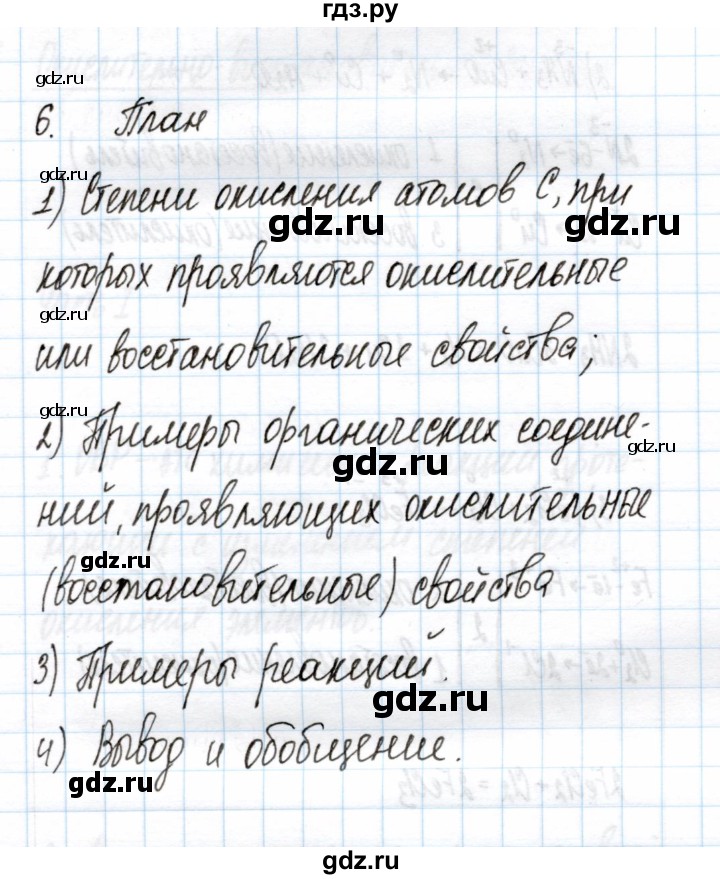 гдз.ру
gdz.ru
6. План
gdz.ru gdz.ru
1) Степени окисления атомов С, при
gdz.ru
которых проявляются окислительные
gdz.ru
или восстановительные свойства;
gdz.ru
2) Примеры органических соедине-
gdz.ru
ний, проявляющих окислительные
gdz.ru
(восстановительные) свойства
gdz.ru
3) Примеры реакций.
gdz.ru
4) Вывод и обобщение.
gdz.ru
gdz.ru